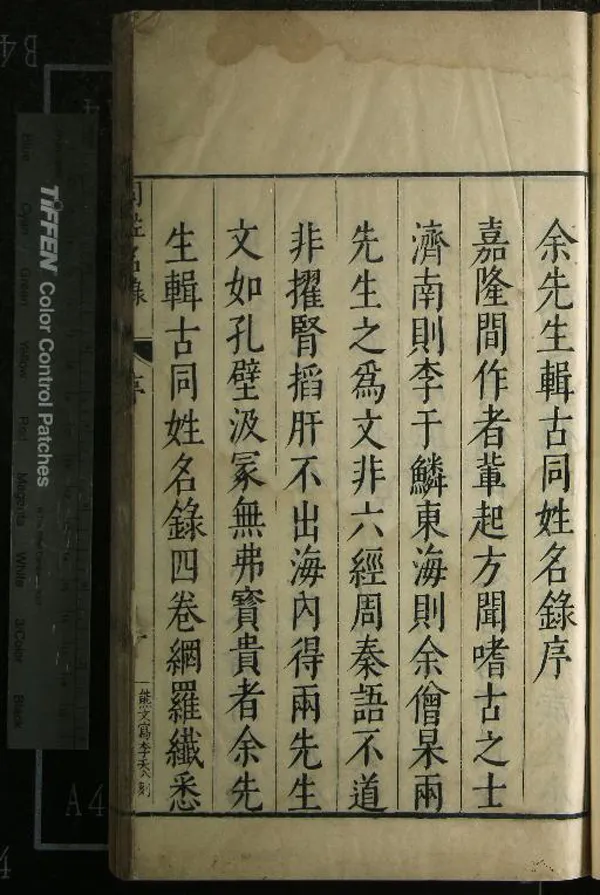 余先生輯古同姓名錄序
嘉隆間作者輩起方聞嗜古之士
濟南則李于鱗東海則余僧杲兩
先生之爲文非六經周秦語不道
非擢腎搯肝不出海內得兩先生
文如孔壁汲冢無弗寶貴者余先
生輯古同姓名錄四卷網羅纖悉
同姓名錄
序
熊文寫李天刻
TIFFEN Color Control Patches
Blue
Cyan
Green
Yellow
Red
Magenta
White
3/Color
Black
B4
A4